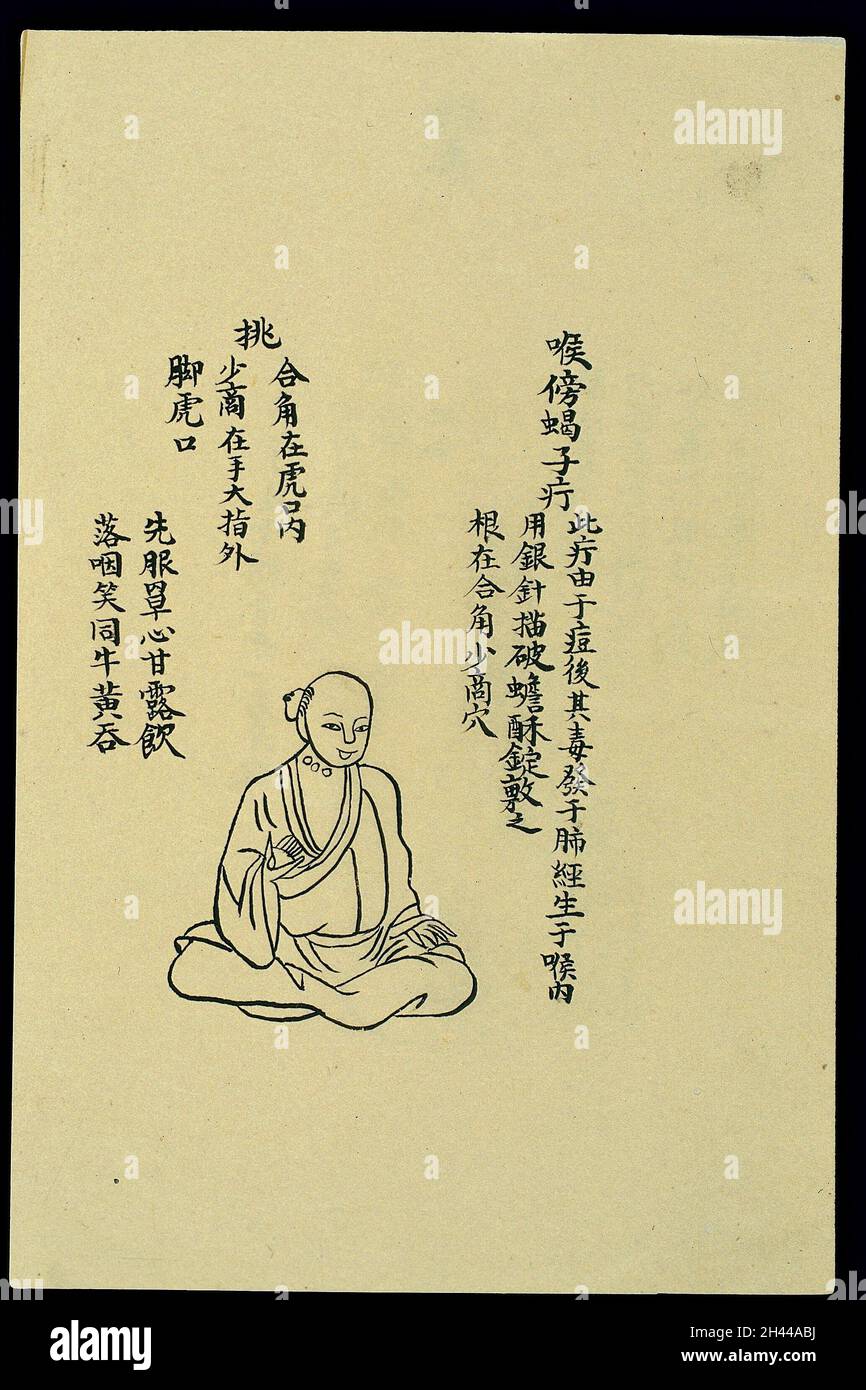 喉傍蝎子疔
此疔由于痘後其毒發于肺經生于喉內
用銀針描破蟾酥錠敷之
根在合角少商穴
挑
合角在虎口內
少商在手大指外
脚虎口
先服罩心甘露飲
落咽笑同牛黃吞
alamy
alamy
alamy
alamy
a
a
a
a
a
a
a
a
a
a
a
a
a
a
Image ID: 2H44ABJ
www.alamy.com